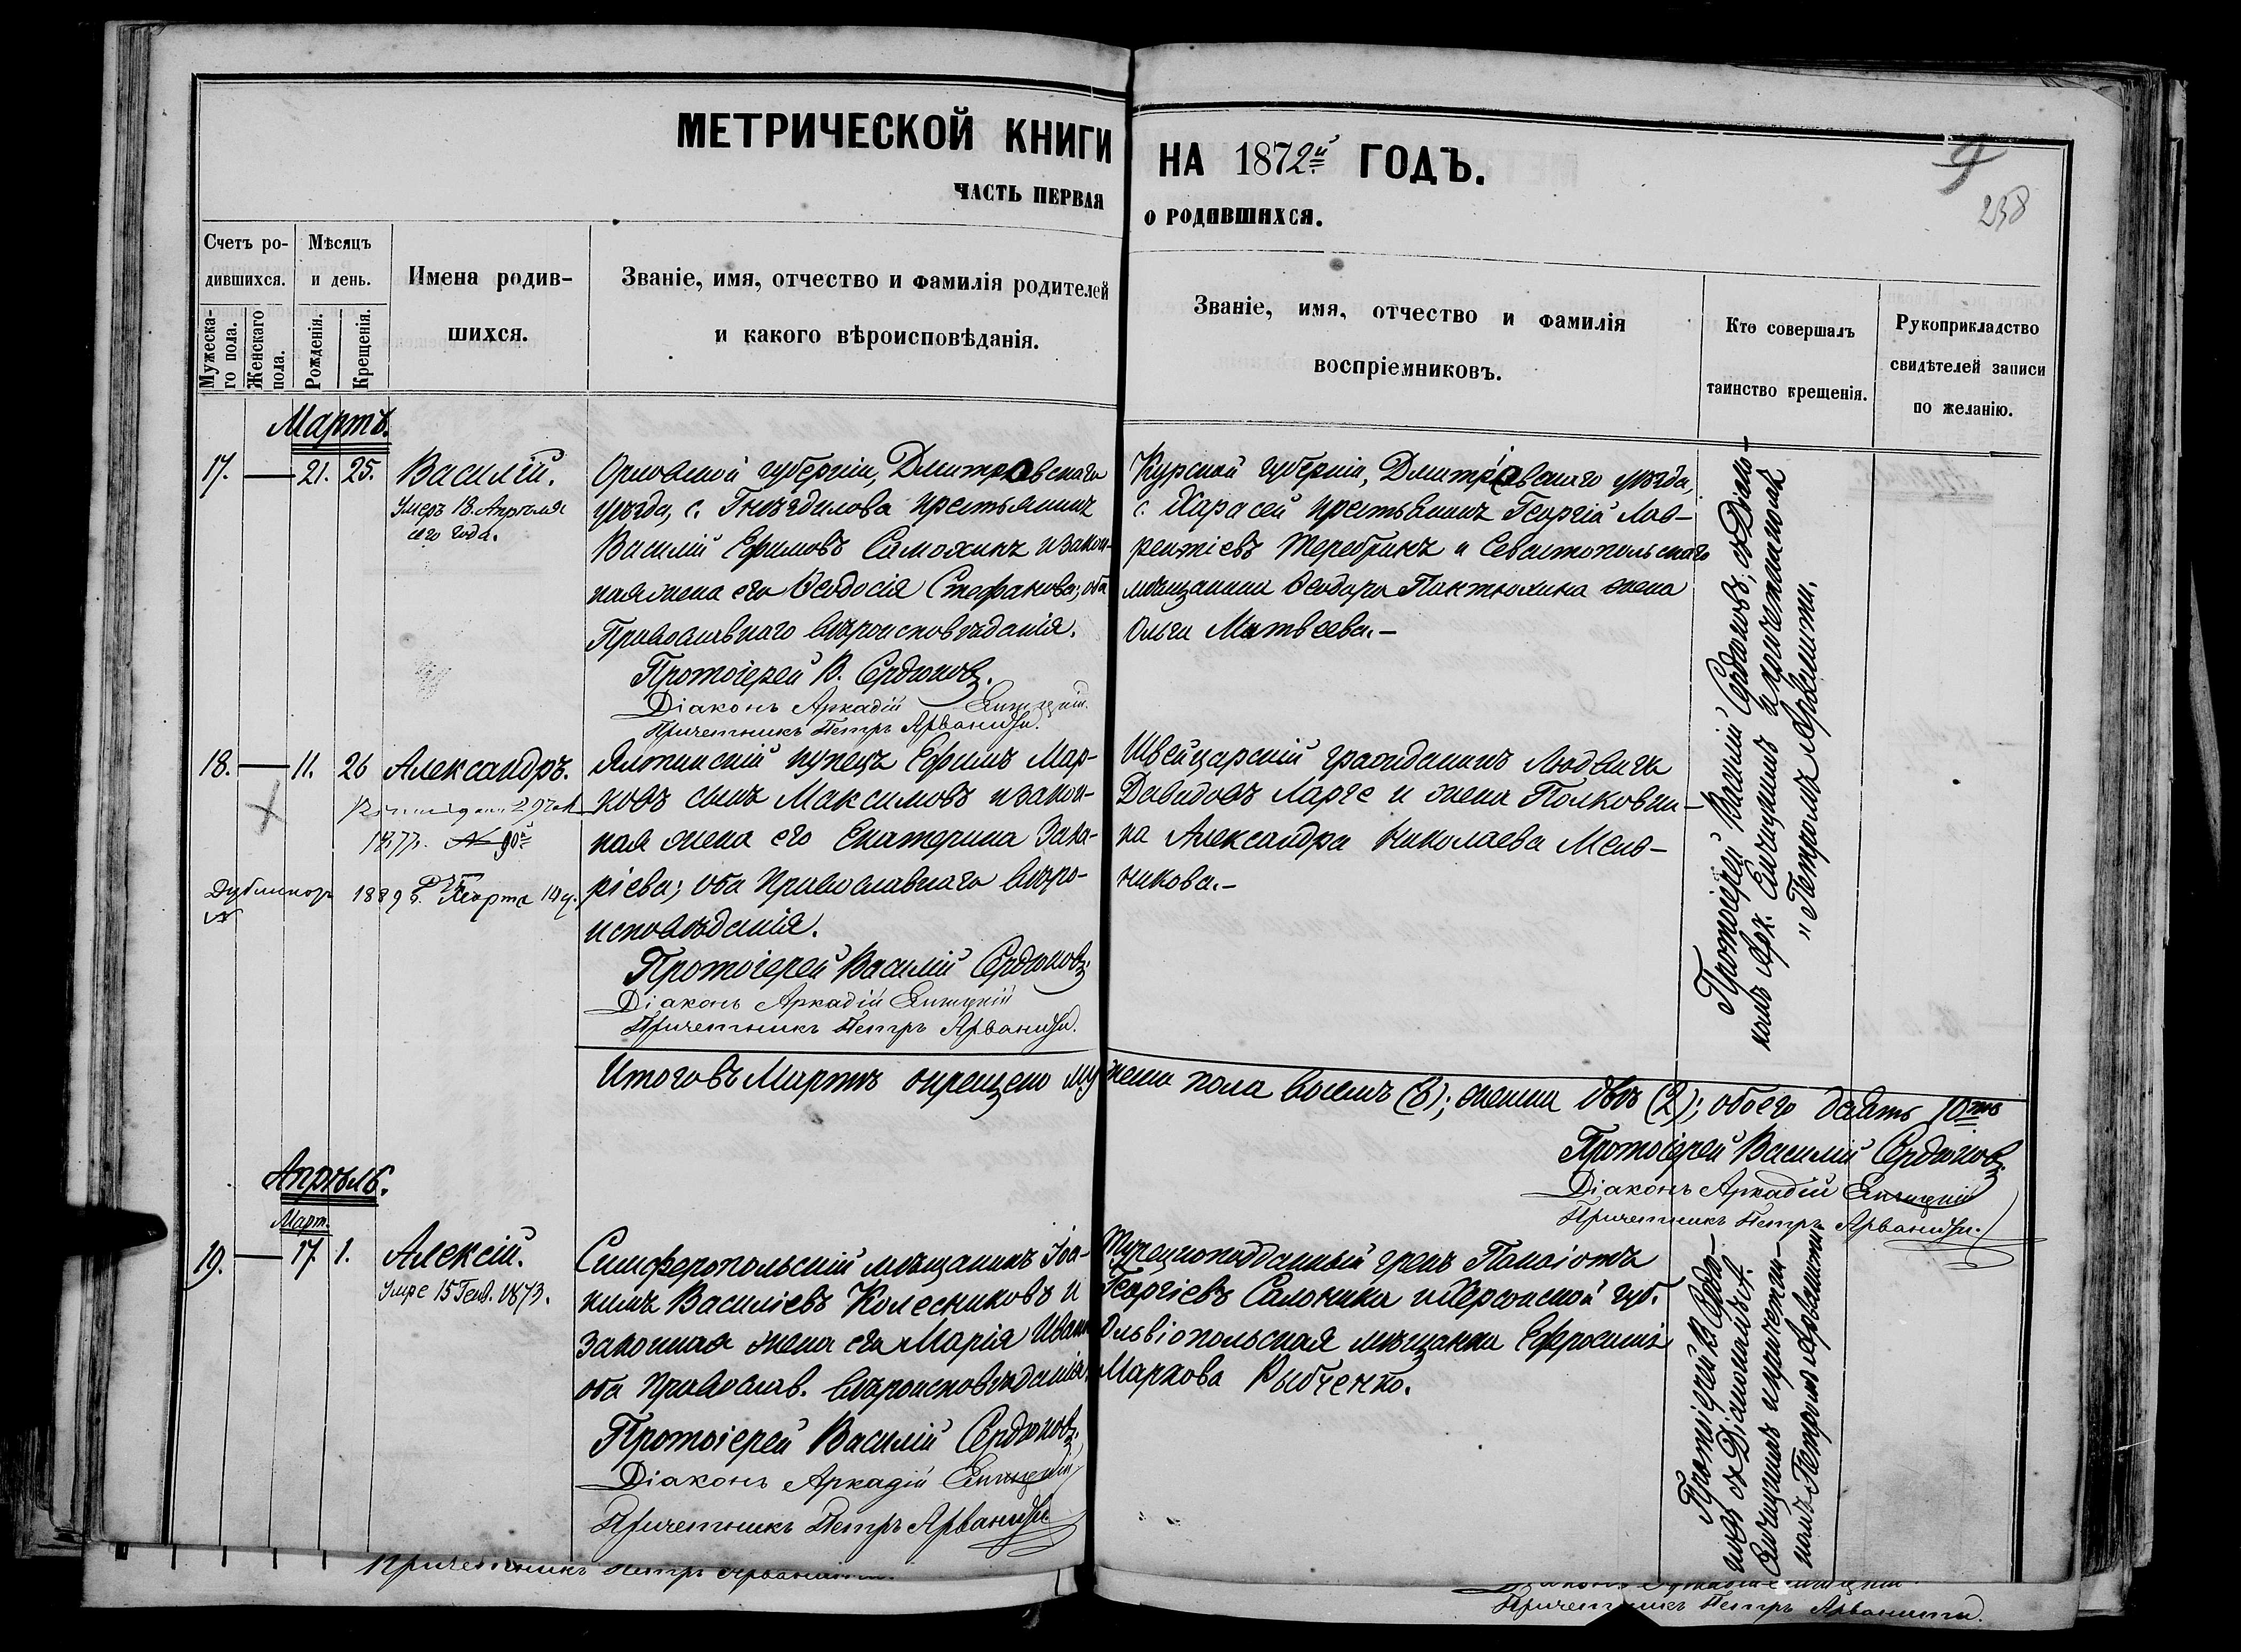 МЕТРИЧЕСКОЙ КНИГИ НА 1872й ГОДЪ.
ЧАСТЬ ПЕРВАЯ О РОДИВШИХСЯ.
9
258
Счетъ ро-
дившихся.
Мужеска-
го пола.
Женскаго
пола.
Мѣсяцъ
и день.
Рожденія.
Крещенія.
Имена родив-
шихся.
Званіе, имя, отчество и фамилія родителей
и какого вѣроисповѣданія.
Званіе, имя, отчество и фамилія
воспріемниковъ.
Кто совершалъ
таинство крещенія.
Рукоприкладство
свидѣтелей записи
по желанію.
Мартъ.
17. — 21. 25. Василій.
Умеръ 18 Апрѣля
сего года.
Орловской губерніи, Дмитровскаго
уѣзда, с. Гнѣздилова крестьянинъ
Василій Ефимовъ Самохинъ и закон-
ная жена его Ѳеодосія Стефанова; оба
Православнаго вѣроисповѣданія.
Протоіерей В. Сердюковъ.
Діаконъ Аркадій
Причетникъ Петръ Арванити.
Курской губерніи, Дмитріевскаго уѣзда,
с. Харасей крестьянинъ Георгій Лав-
рентіевъ Теребринъ и Севастопольскаго
мѣщанина Ѳеодора Пактюхина жена
Ольга Матвеева.—
18. — 11. 26 Александръ.
1877. № 90й
Дубликатъ 1889 г. Марта 14 д.
Ялтинскій купецъ Ефимъ Мар-
ковъ сынъ Максимовъ и закон-
ная жена его Екатерина Заха-
ріева; оба Православнаго вѣро-
исповѣданія.
Протоіерей Василій Сердюковъ.
Діаконъ Аркадій
Причетникъ Петръ Арванити.
Швейцарскій гражданинъ Людвигъ
Давидовъ Ларге и жена Полковни-
ка Александра Николаева Мель-
никова.—
Протоіерей Василій Сердюковъ, съ Діако-
номъ Арк. и причетникомъ
Петромъ Арванити.
Итого въ Мартѣ окрещено мужеска пола восемь (8); женска двѣ (2); обоего десять 10ть
Протоіерей Василій Сердюковъ.
Діаконъ Аркадій
Причетникъ Петръ Арванити.
Апрѣль.
Март.
19. — 17. 1. Алексій.
Умре 15 Генв. 1873.
Симферопольскій мѣщанинъ Іоа-
кимъ Василіевъ Колесниковъ и
законная жена его Марія Иван
оба православ. вѣроисповѣданія.
Протоіерей Василій Сердюковъ.
Діаконъ Аркадій
Причетникъ Петръ Арванити
Турецкоподданный грекъ Панаіотъ
Георгіевъ Салоники и Херсонской губ.
Ольвіопольская мѣщанка Ефросинія
Маркова Рыбченко.
Протоіерей В. Сердю-
ковъ съ Діакономъ А.
и причетни-
комъ Петромъ Арванити
Причетникъ Петръ Арванити.
Причетникъ Петръ Арванити.